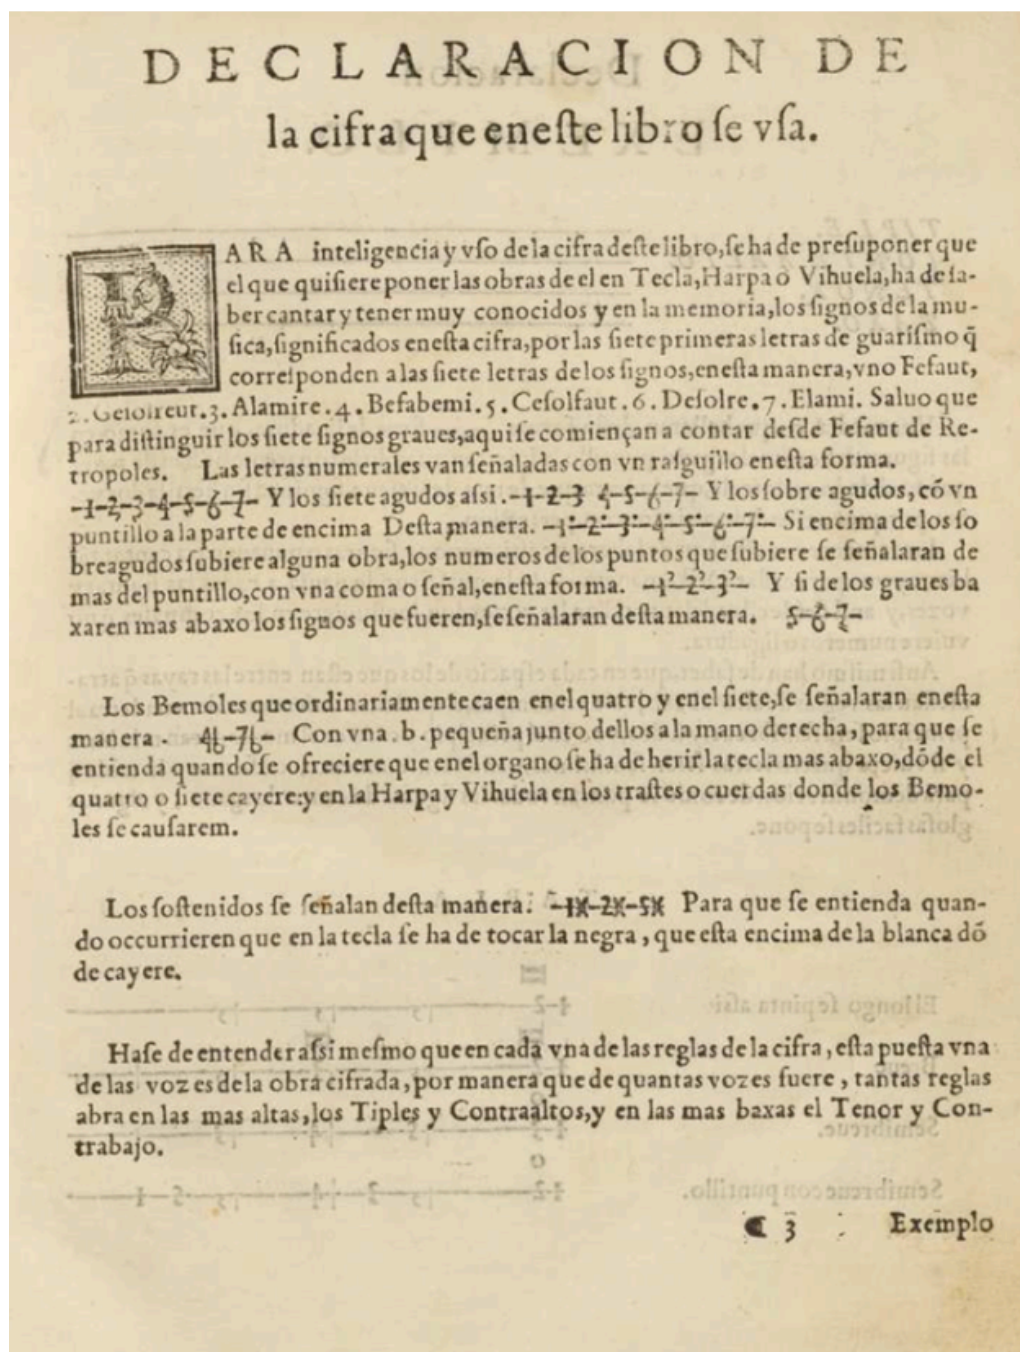 DECLARACION DE
la cifra que eneſte libro ſe vſa.
PARA inteligencia y vſo de la cifra deſte libro, ſe ha de preſuponer que
el que quiſiere poner las obras de el en Tecla, Harpa o Vihuela, ha de ſa-
ber cantar y tener muy conocidos y en la memoria, los ſignos de la mu-
ſica, ſignificados eneſta cifra, por las ſiete primeras letras de guariſmo q̃
correſponden a las ſiete letras de los ſignos, eneſta manera, vno Fefaut,
2. Geſolreut. 3. Alamire. 4. Befabemi. 5. Ceſolfaut. 6. Deſolre. 7. Elami. Saluo que
para diſtinguir los ſiete ſignos graues, aqui ſe comiençan a contar deſde Fefaut de Re-
tropoles. Las letras numerales van ſeñaladas con vn raſguillo eneſta forma.
-1-2-3-4-5-6-7- Y los ſiete agudos aſsi. -1-2-3 4-5-6-7- Y los ſobre agudos, cõ vn
puntillo a la parte de encima Deſta manera. -1·-2·-3·-4·-5·-6·-7·- Si encima de los ſo
breagudos ſubiere alguna obra, los numeros de los puntos que ſubiere ſe ſeñalaran de
mas del puntillo, con vna coma o ſeñal, eneſta forma. -1?-2?-3?- Y ſi de los graues ba
xaren mas abaxo los ſignos que fueren, ſe ſeñalaran deſta manera. 5-6-7-
Los Bemoles que ordinariamente caen enel quatro y enel ſiete, ſe ſeñalaran eneſta
manera. 4b-7b- Con vna. b. pequeña junto dellos a la mano derecha, para que ſe
entienda quando ſe ofreciere que enel organo ſe ha de herir la tecla mas abaxo, dõde el
quatro o ſiete cayere: y en la Harpa y Vihuela en los traſtes o cuerdas donde los Bemo-
les ſe cauſarem.
Los ſoſtenidos ſe ſeñalan deſta manera. -1X-2X-5X Para que ſe entienda quan-
do occurrieren que en la tecla ſe ha de tocar la negra, que eſta encima de la blanca dõ
de cayere.
Haſe de entender aſsi meſmo que en cada vna de las reglas de la cifra, eſta pueſta vna
de las vozes de la obra cifrada, por manera que de quantas vozes fuere, tantas reglas
abra en las mas altas, los Tiples y Contraaltos, y en las mas baxas el Tenor y Con-
trabajo.
3 Exemplo